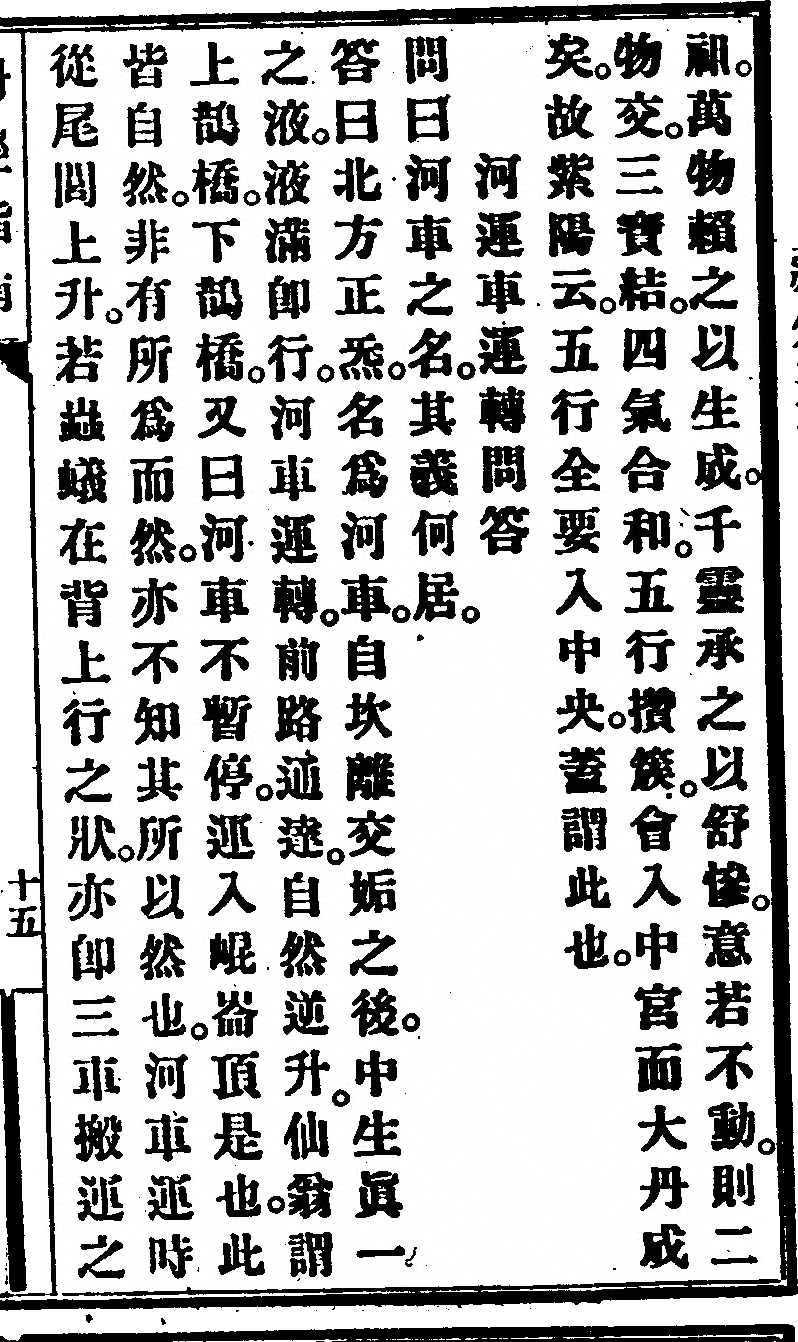 祖。萬物賴之以生成。千靈承之以舒慘。意若不動。則二
物交。三寶結。四氣合和。五行攢簇。會入中宮而大丹成
矣。故紫陽云。五行全要入中央。蓋謂此也。
河運車運轉問答
問曰河車之名。其義何居。
答曰北方正炁。名為河車。自坎離交姤之後。中生眞一
之液。液滿卽行。河車運轉。前路通達。自然逆升。仙翁謂
上鵲橋。下鵲橋。又曰河車不暫停。運入崐崙頂是也。此
皆自然。非有所為而然。亦不知其所以然也。河車運時
從尾閭上升。若蟲蟻在背上行之狀。亦卽三車搬運之
十五